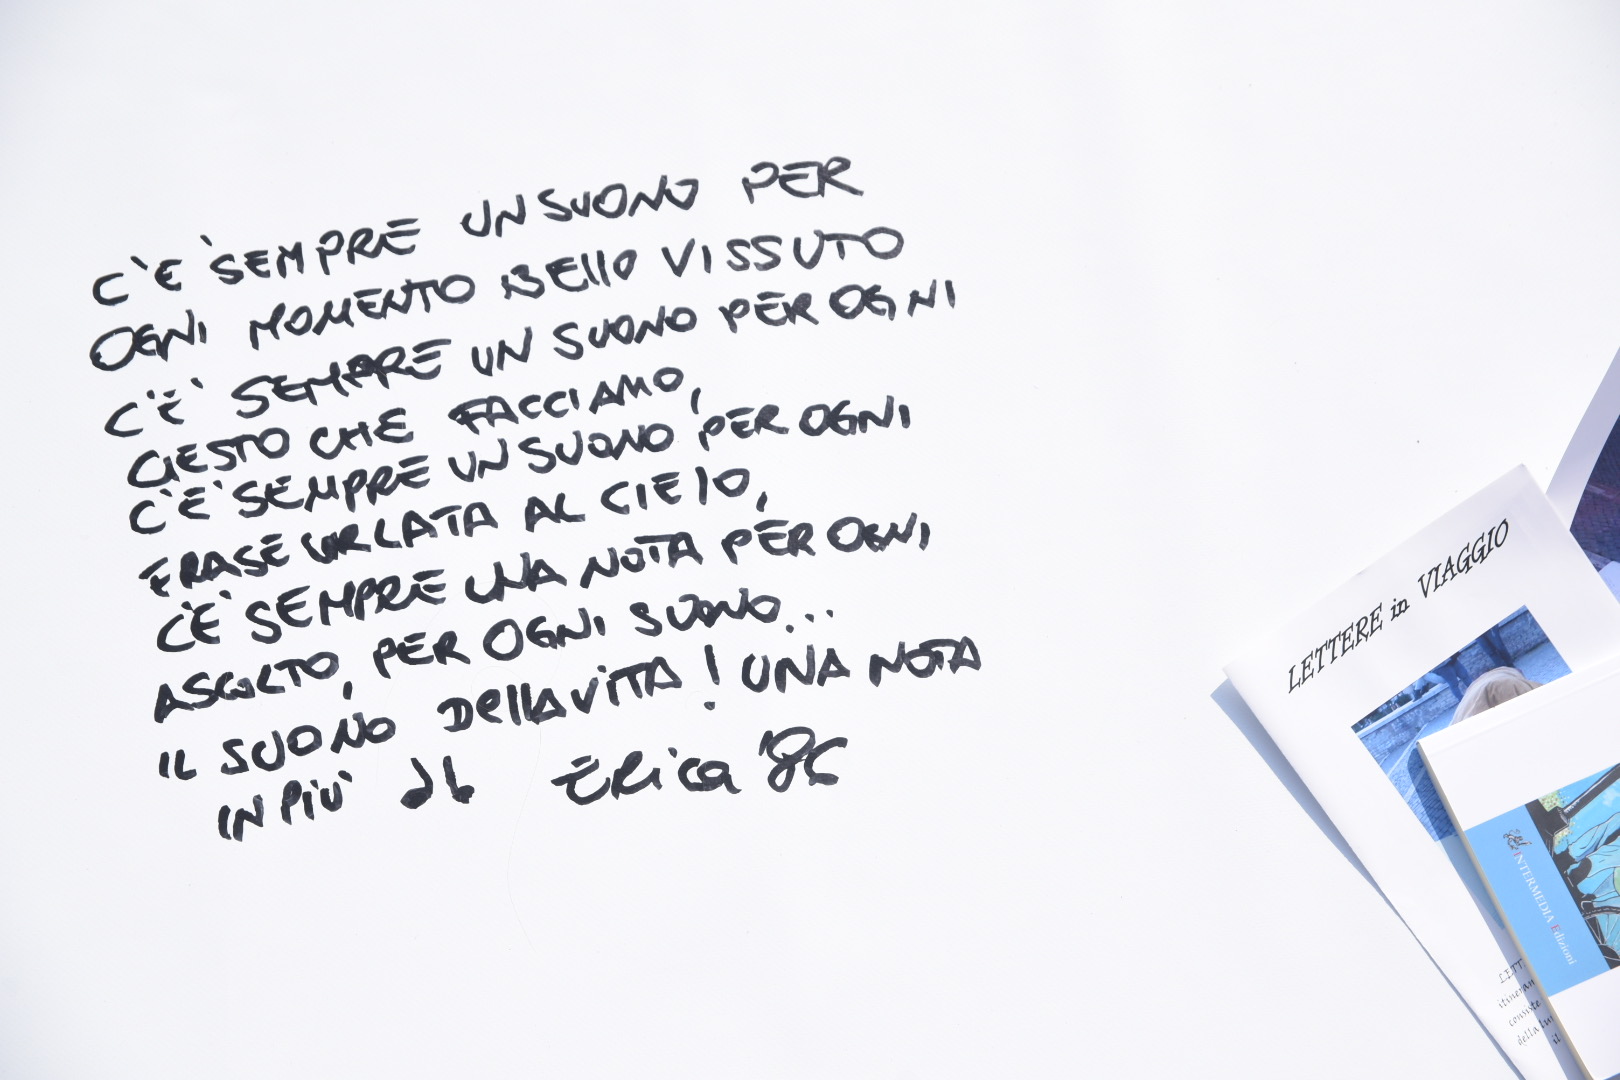 C'È SEMPRE UN SUONO PER
OGNI MOMENTO BEllO VISSUTO
C'È SEMPRE UN SUONO PER OGNI
GESTO CHE FACCIAMO,
C'È SEMPRE UN SUONO PER OGNI
FRASE URLATA AL CIElO,
C'È SEMPRE UNA NOTA PER OGNI
ASCOLTO, PER OGNI SUONO...
IL SUONO DellA VITA! UNA NOTA
IN PIÙ
ERica
LETTERE in VIAGGIO
INTERMEDIA Edizioni
consiste
della
il